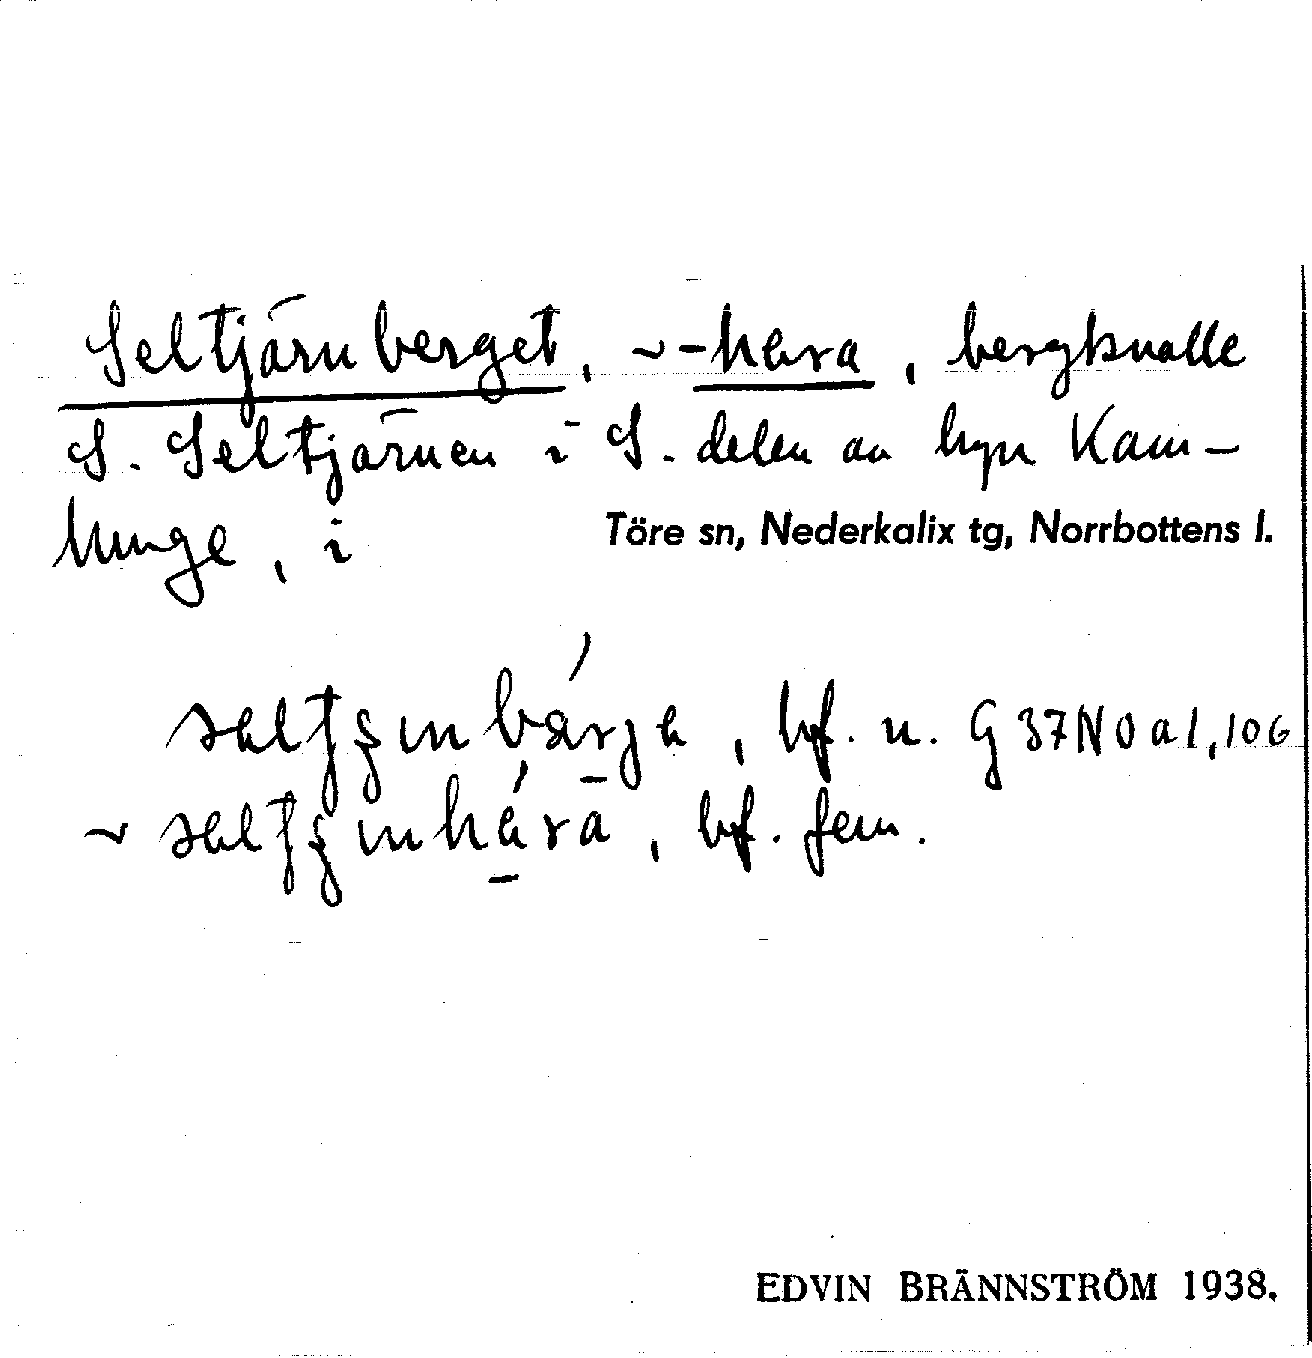 Seltjärnberget, ~ -hara, bergknalle
S. Seltjärnen i S. delen av byn Kam-
lunge, i Töre sn, Nederkalix tg, Norrbottens l.
, bf. n. G 37 NO a 1, 106
~ , bf. fem.
EDVIN BRÄNNSTRÖM 1938.